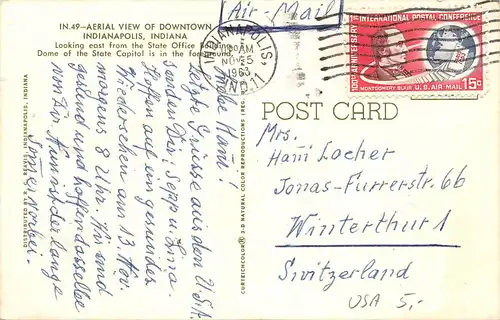 IN.49—AERIAL VIEW OF DOWNTOWN
INDIANAPOLIS, INDIANA
Looking east from the State Office Building
Dome of the State Capitol is in the foreground.
Air-Mail
INDIANAPOLIS,
IND. 11
NOV 5
1963
100TH ANNIVERSARY
1st INTERNATIONAL POSTAL CONFERENCE
MONTGOMERY BLAIR U.S. AIR MAIL 15¢
Liebe Hanni!
Letzte Grüsse aus den U.S.A.
senden Dir Sepp u. Lina.
Hoffen auf ein gesundes
Wiedersehen am 13. Nov.
morgens 8 Uhr. Wir sind
gesund und hoffen dasselbe
von Dir.
der lange
Sommer vorbei.
POST CARD
Mrs.
Hanni Locher
Jonas-Furrerstr. 66
Winterthur 1
Switzerland
USA 5,-
CURTEICHCOLOR® 3-D NATURAL COLOR REPRODUCTIONS
INDIANAPOLIS, INDIANA